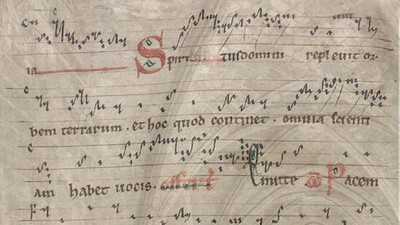 ia Spiritus domini replevit or
bem terrarum · et hoc quod continet · omnia scienti
am habet vocis · Emitte Pacem